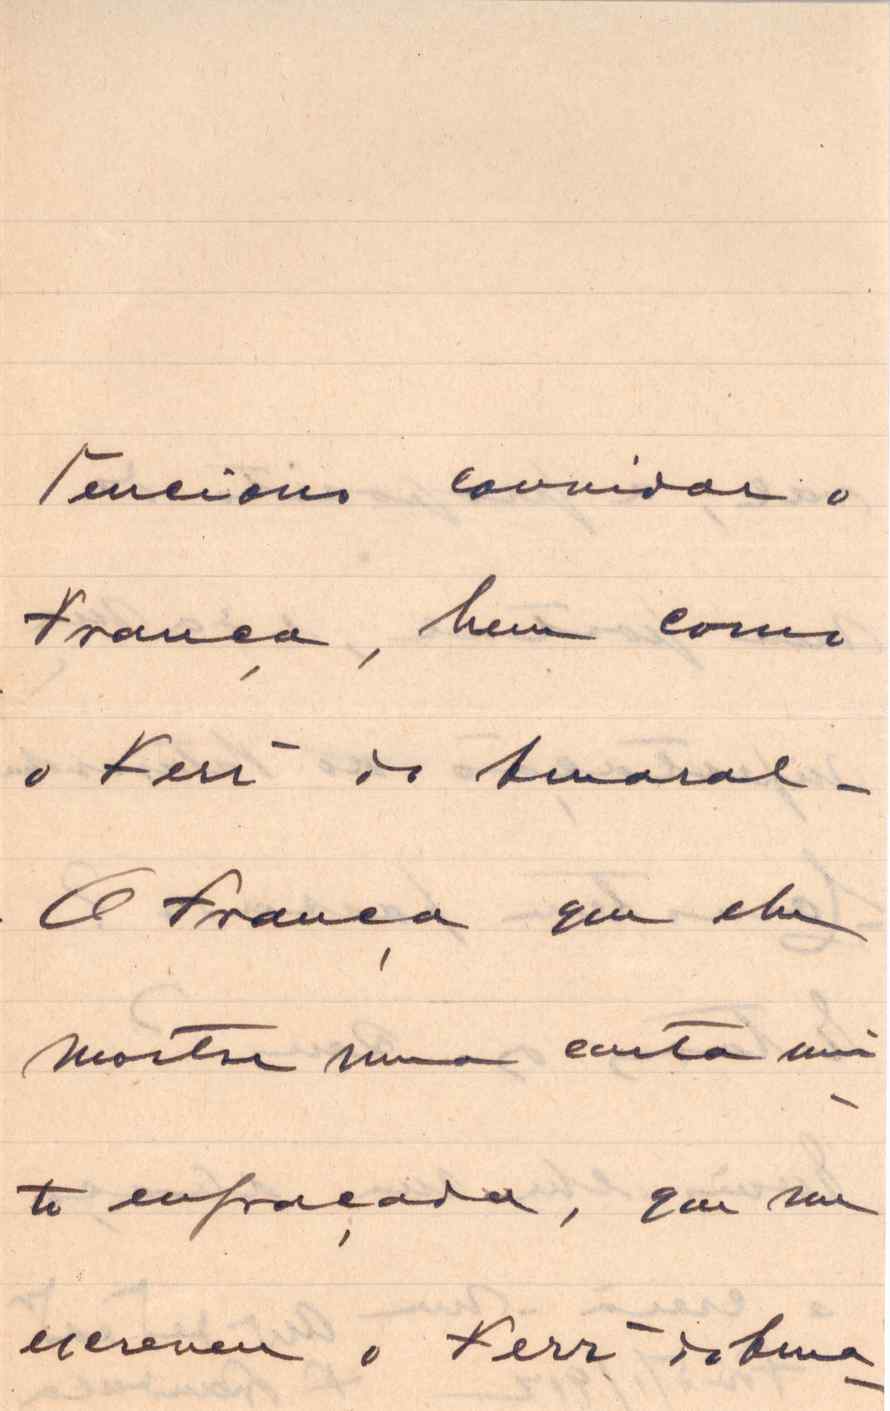 Tenciono convidar o
França, bem como
o Ferr. do Amaral -
O França que lhe
mostre uma carta mui
to engraçada, que me
escreveu o Ferr. do Ama